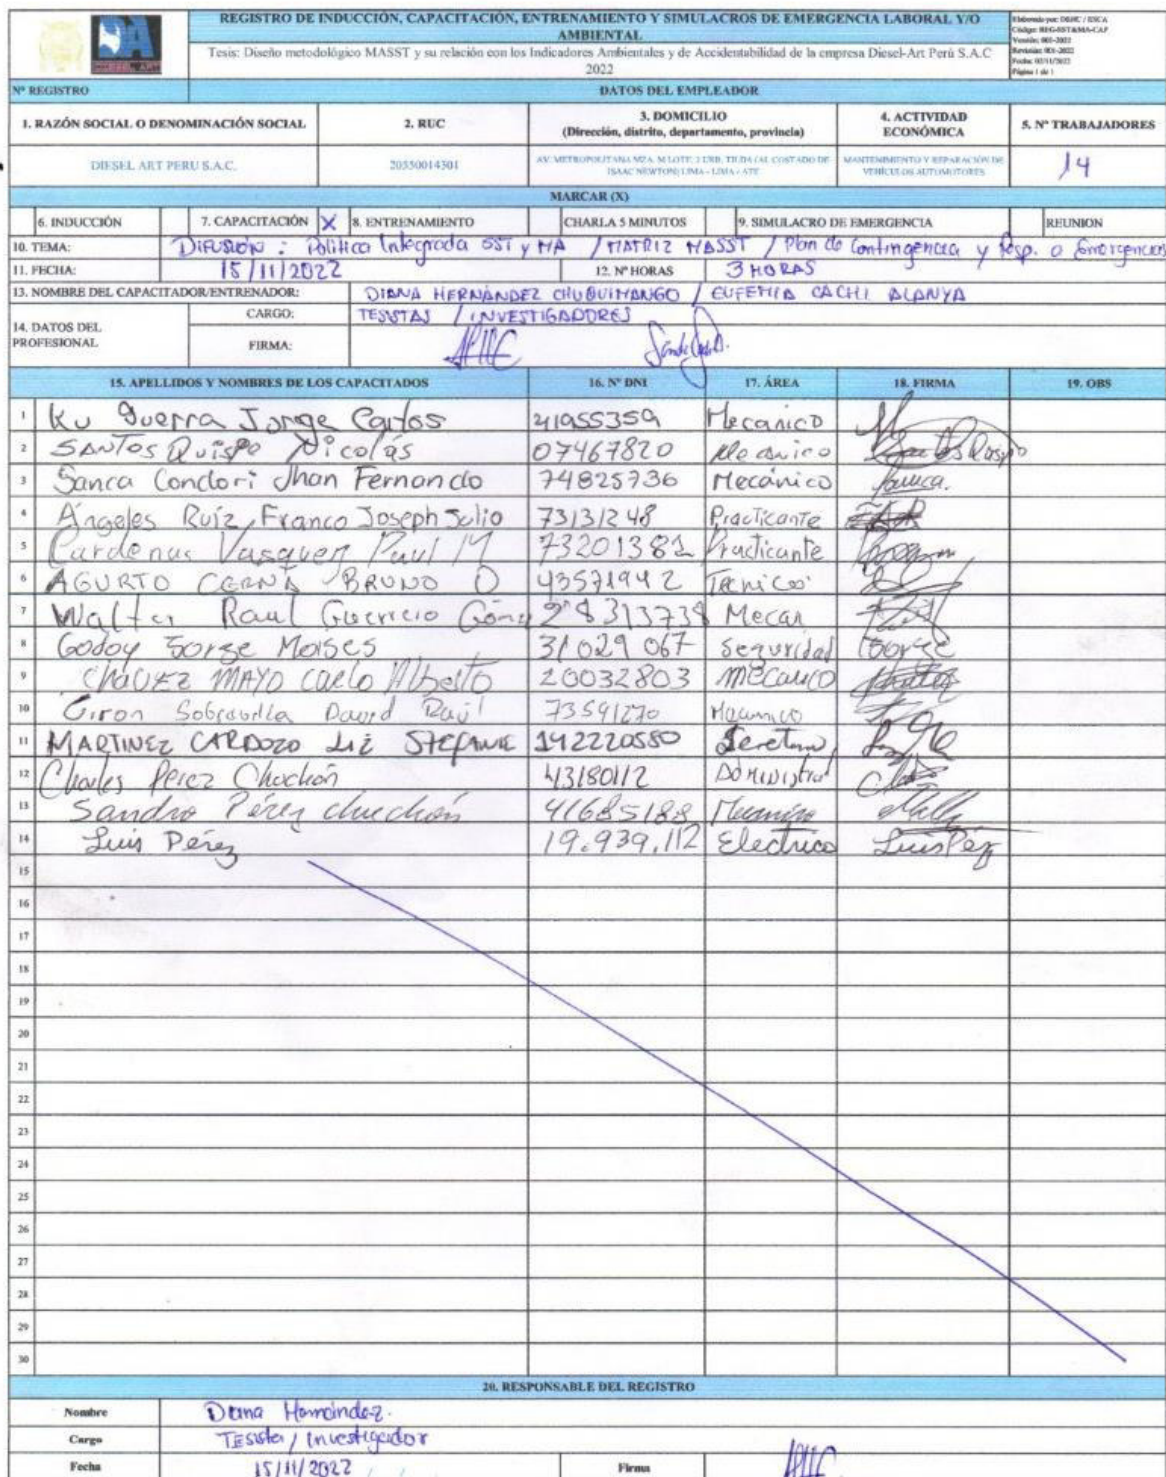 REGISTRO DE INDUCCIÓN, CAPACITACIÓN, ENTRENAMIENTO Y SIMULACROS DE EMERGENCIA LABORAL Y/O AMBIENTAL
Tesis: Diseño metodológico MASST y su relación con los Indicadores Ambientales y de Accidentabilidad de la empresa Diesel-Art Perú S.A.C 2022
Elaborado por: DRHC / ESCA
Código: REG-SST&MA-CAP
Versión: 001-2022
Revisión: 001-2022
Fecha: 02/11/2022
Página 1 de 1
Nº REGISTRO DATOS DEL EMPLEADOR
1. RAZÓN SOCIAL O DENOMINACIÓN SOCIAL 2. RUC 3. DOMICILIO (Dirección, distrito, departamento, provincia) 4. ACTIVIDAD ECONÓMICA 5. Nº TRABAJADORES
DIESEL ART PERU S.A.C. 20550014301 AV. METROPOLITANA MZA. M LOTE. 2 URB. TILDA (AL COSTADO DE ISAAC NEWTON) LIMA - LIMA - ATE MANTENIMIENTO Y REPARACIÓN DE VEHÍCULOS AUTOMOTORES 14
MARCAR (X)
6. INDUCCIÓN 7. CAPACITACIÓN X 8. ENTRENAMIENTO CHARLA 5 MINUTOS 9. SIMULACRO DE EMERGENCIA REUNION
10. TEMA: DIFUSIÓN : Política Integrada SST y MA / MATRIZ MASST / Plan de Contingencia y Resp. a Emergencias
11. FECHA: 15/11/2022 12. Nº HORAS 3 HORAS
13. NOMBRE DEL CAPACITADOR/ENTRENADOR: DIANA HERNÁNDEZ CHUQUIMANGO / EUFEMIA CACHI ALANYA
14. DATOS DEL PROFESIONAL CARGO: TESISTAS / INVESTIGADORES
FIRMA:
15. APELLIDOS Y NOMBRES DE LOS CAPACITADOS 16. Nº DNI 17. ÁREA 18. FIRMA 19. OBS
1 Ku Guerra Jorge Carlos 21955359 Mecanico
2 SANTOS Quispe Nicolás 07467820 Mecanico
3 Sanca Condori Jhan Fernando 74825736 Mecánico
4 Ángeles Ruíz, Franco Joseph Julio 73131248 Practicante
5 Cardenas Vasquez Paul M 73201382 Practicante
6 AGURTO CERNA BRUNO O 43571942 Tecnico
7 Walter Raul Guerrero 28313738 Mecan
8 Godoy Jorge Moises 31029067 Seguridad Jorge
9 CHAVEZ MAYO Carlo Alberto 20032803 MECanico
10 Giron Sobrevilla David Raúl 73591270 Mecanico
11 MARTINEZ CARDOZO LIZ STEFANIE 142220580
12 Charles Perez Chuchón 43180112
13 Sandro Pérez chuchón 41685188
14 Luis Pérez 19.939.112 Electrico Luis Pérez
15
16
17
18
19
20
21
22
23
24
25
26
27
28
29
30
20. RESPONSABLE DEL REGISTRO
Nombre Diana Hernández.
Cargo Tesista / Investigador
Fecha 15/11/2022 Firma